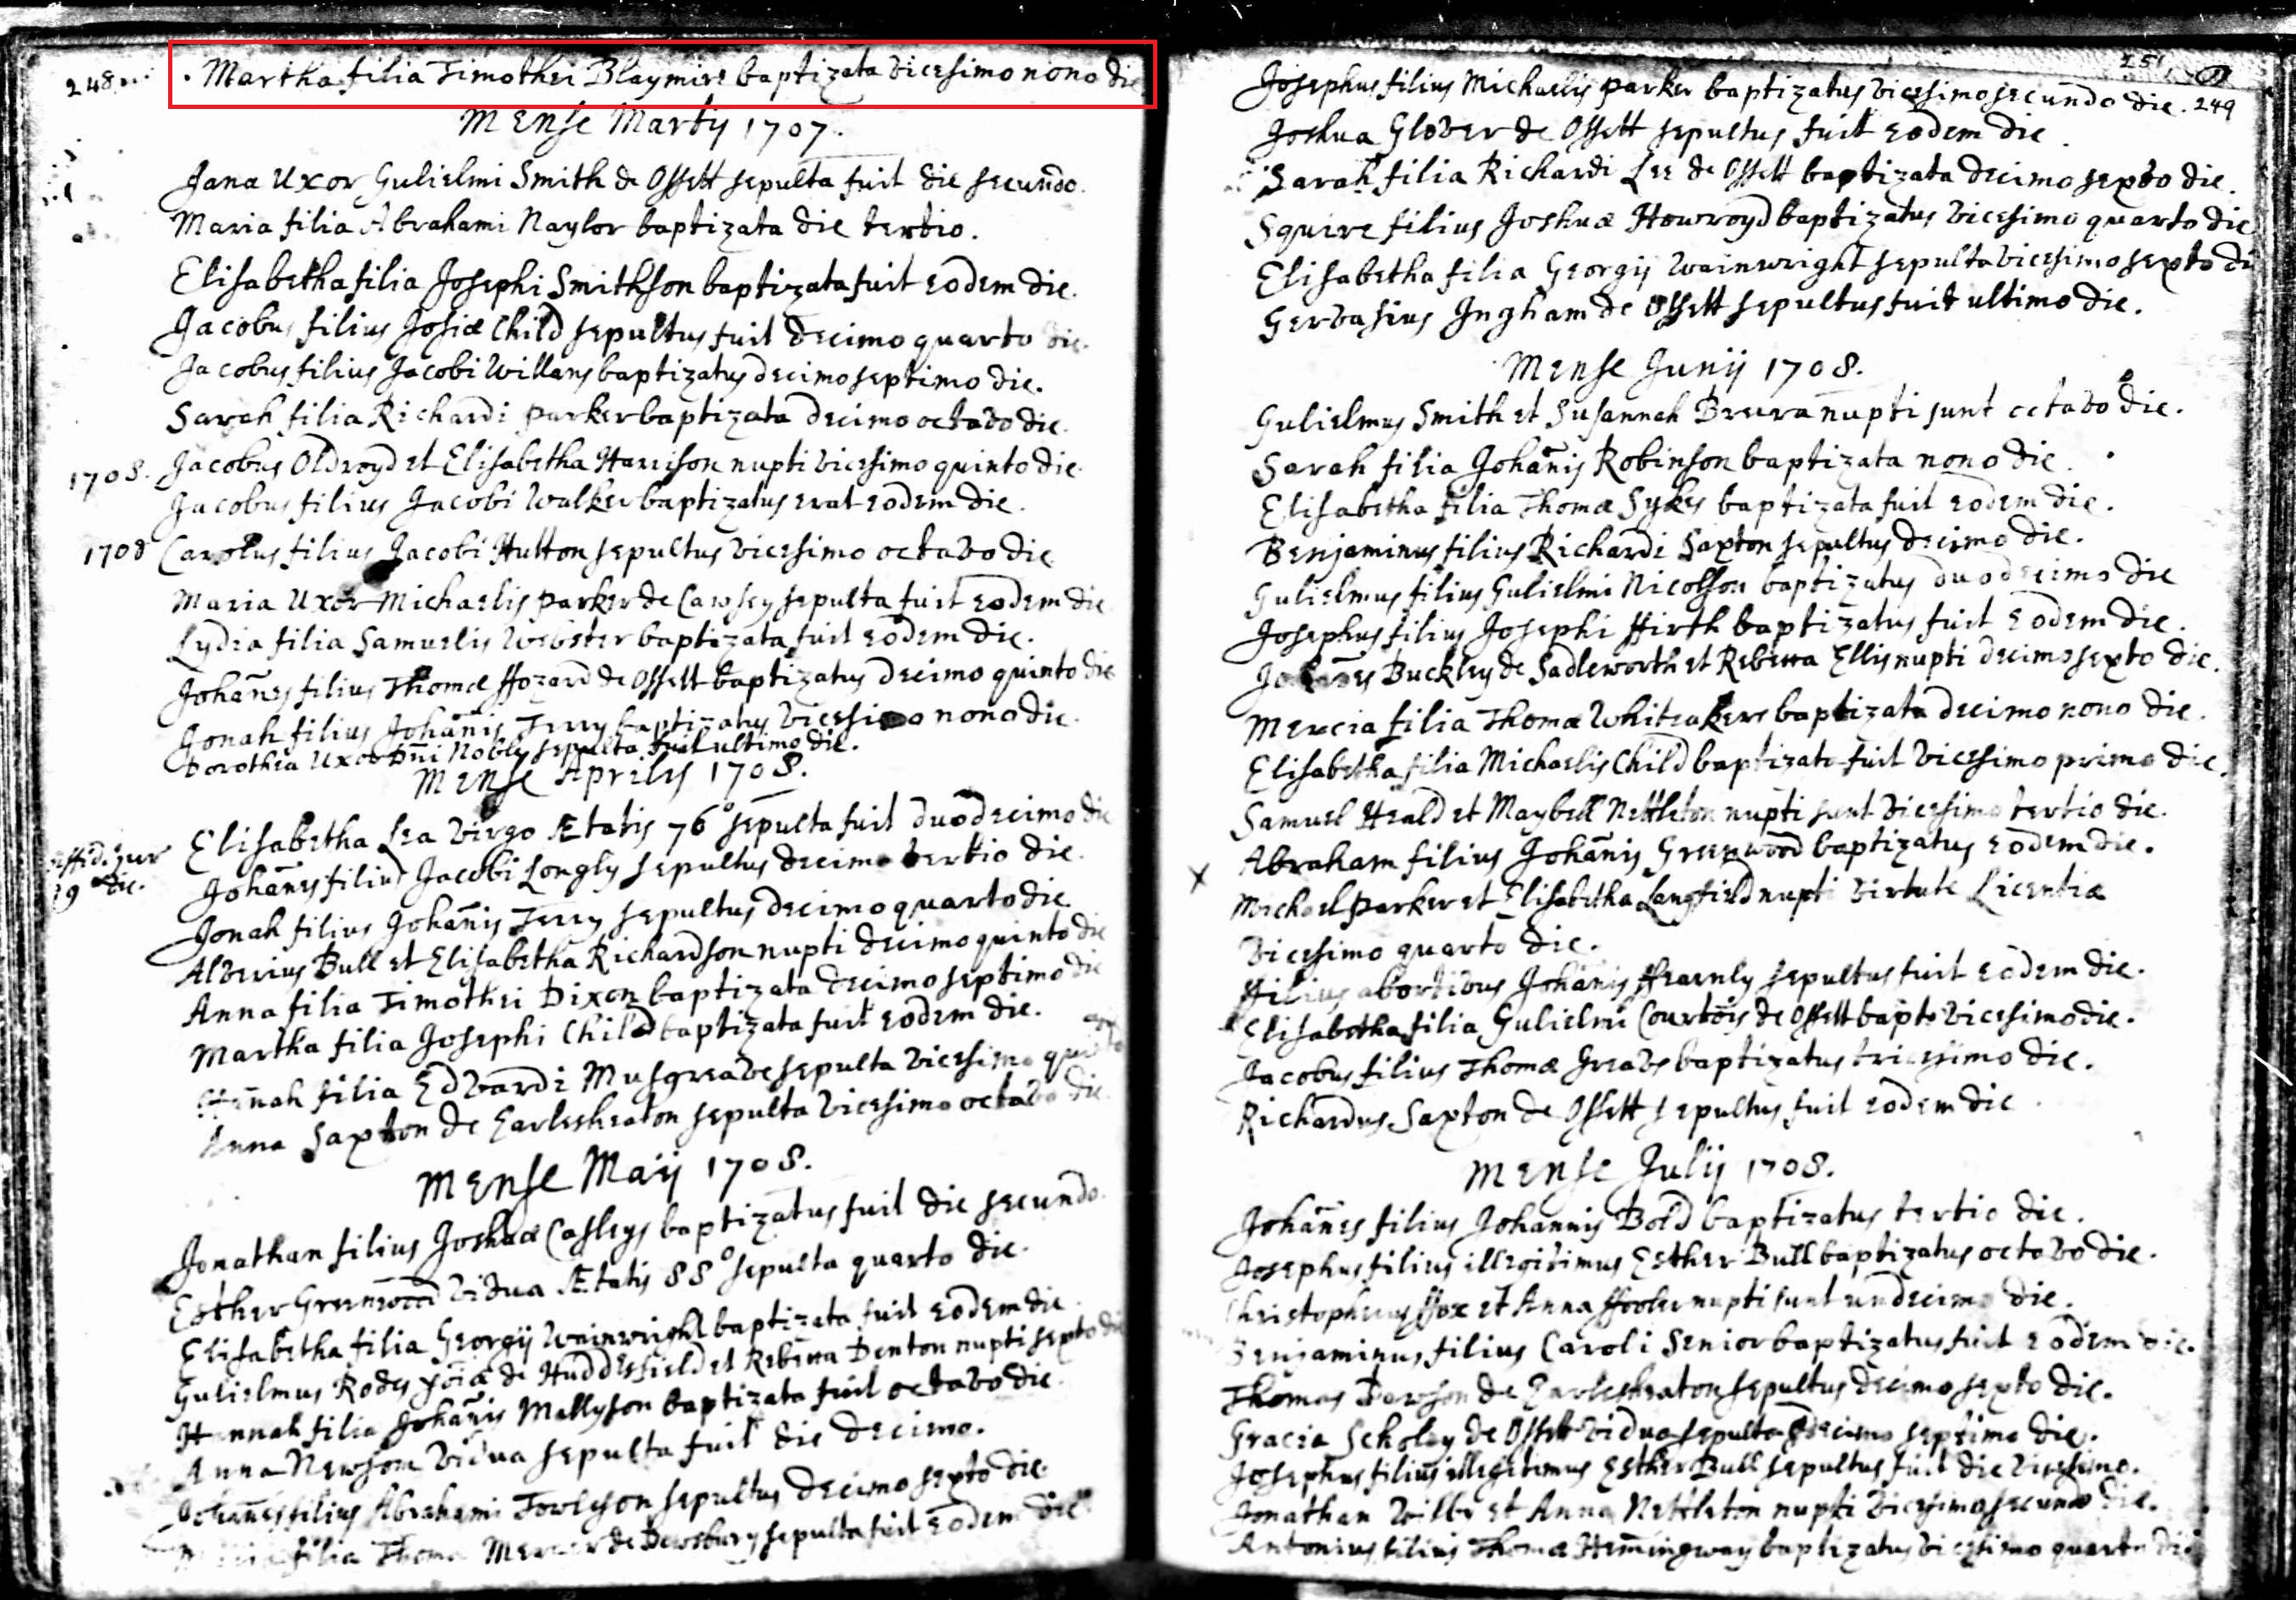 248
Martha filia Timothei Blaymire baptizata vicesimo nono die
Mense Martij 1707.
Jana Uxor Gulielmi Smith de Ossett sepulta fuit die secundo.
Maria filia Abrahami Naylor baptizata die tertio.
Elisabetha filia Josephi Smithson baptizata fuit eodem die.
Jacobus filius Josiæ Child sepultus fuit decimo quarto die.
Jacobus filius Jacobi Willans baptizatus decimo septimo die.
Sarah filia Richardi Parker baptizata decimo octavo die.
1708. Jacobus Oldroyd et Elisabetha Harrison nupti vicesimo quinto die.
Jacobus filius Jacobi Walker baptizatus erat eodem die.
1708 Carolus filius Jacobi Hutton sepultus vicesimo octavo die
Maria Uxor Michaelis Parker de Cawsey sepulta fuit eodem die
Lydia filia Samuelis Webster baptizata fuit eodem die.
Johañes filius Thomæ ffozard de Ossett baptizatus decimo quinto die
Jonah filius Johañis Terry baptizatus vicesimo nono die.
Dorothea Uxor Dñi Nobly sepulta fuit ultimo die.
Mense Aprilis 1708.
Elisabetha Lea virgo Ætatis 76° sepulta fuit duodecimo die
19 die.
Johañes filius Jacobi Longly sepultus decimo tertio die.
Jonah filius Johañis Terry sepultus decimo quarto die.
Alverius Bull et Elisabetha Richardson nupti decimo quinto die
Anna filia Timothei Dixon baptizata decimo septimo die
Martha filia Josephi Child baptizata fuit eodem die.
Hañah filia Edvardi Musgreave sepulta vicesimo quinto
Anna Saxton de Earlesheaton sepulta vicesimo octavo die.
Mense Maij 1708.
Jonathan filius Joshuæ Casleys baptizatus fuit die secundo.
Esther Greenwood vidua Ætatis 88° sepulta quarto die.
Elisabetha filia Georgij Wainwright baptizata fuit eodem die.
Gulielmus Rodes de Huddesfield et Rebecca Denton nupti sexto die
Hannah filia Johañis Mallyson baptizata fuit octavo die.
Anna Newsom vidua sepulta fuit die decimo.
Johañes filius Abrahami Towleson sepultus decimo sexto die.
filia Thomæ Mercer de Dewsbury sepulta fuit eodem die.
251
Josephus filius Michaelis Parker baptizatus vicesimo secundo die. 249
Joshua Glover de Ossett sepultus fuit eodem die.
Sarah filia Richardi Lee de Ossett baptizata decimo sexto die.
Squire filius Joshuæ Howroyd baptizatus vicesimo quarto die
Elisabetha filia Georgij Wainwright sepulta vicesimo sexto die
Gervasius Ingham de Ossett sepultus fuit ultimo die.
Mense Junij 1708.
Gulielmus Smith et Susannah Brevra nupti sunt octavo die.
Sarah filia Johañis Robinson baptizata nono die.
Elisabetha filia Thomæ Sykes baptizata fuit eodem die.
Benjaminus filius Richardi Saxton sepultus decimo die.
Gulielmus filius Gulielmi Nicolson baptizatus duodecimo die
Josephus filius Josephi ffirth baptizatus fuit eodem die.
Johañes Buckley de Sadleworth et Rebecca Ellis nupti decimo sexto die.
Mercia filia Thomæ Whiteakers baptizata decimo nono die.
Elisabetha filia Michaelis Child baptizata fuit vicesimo primo die.
Samuel Heald et Maybell Nettleton nupti sunt vicesimo tertio die.
Abraham filius Johañis Greenwood baptizatus eodem die.
x Michael Parker et Elisabetha Langfield nupti virtute Licentiæ
vicesimo quarto die.
ffilius abortivus Johañis ffearnly sepultus fuit eodem die.
Elisabetha filia Gulielmi Courtois de Ossett bapto vicesimo die.
Jacobus filius Thomæ Greave baptizatus tricesimo die.
Richardus Saxton de Ossett sepultus fuit eodem die.
Mense Julij 1708.
Johañes filius Johannis Bold baptizatus tertio die.
Josephus filius illegitimus Esther Bull baptizatus octavo die.
Christopherus ffox et Anna ffooler nupti sunt undecimo die.
Benjaminus filius Caroli Senior baptizatus fuit eodem die.
Thomas Dawson de Earlesheaton sepultus decimo sexto die.
Gracia Scholey de Ossett vidua sepulta decimo septimo die.
Josephus filius illegitimus Esther Bull sepultus fuit die vicesimo.
Jonathan Wilby et Anna Nettleton nupti vicesimo secundo die.
Antonius filius Thomæ Hemingway baptizatus vicesimo quarto die